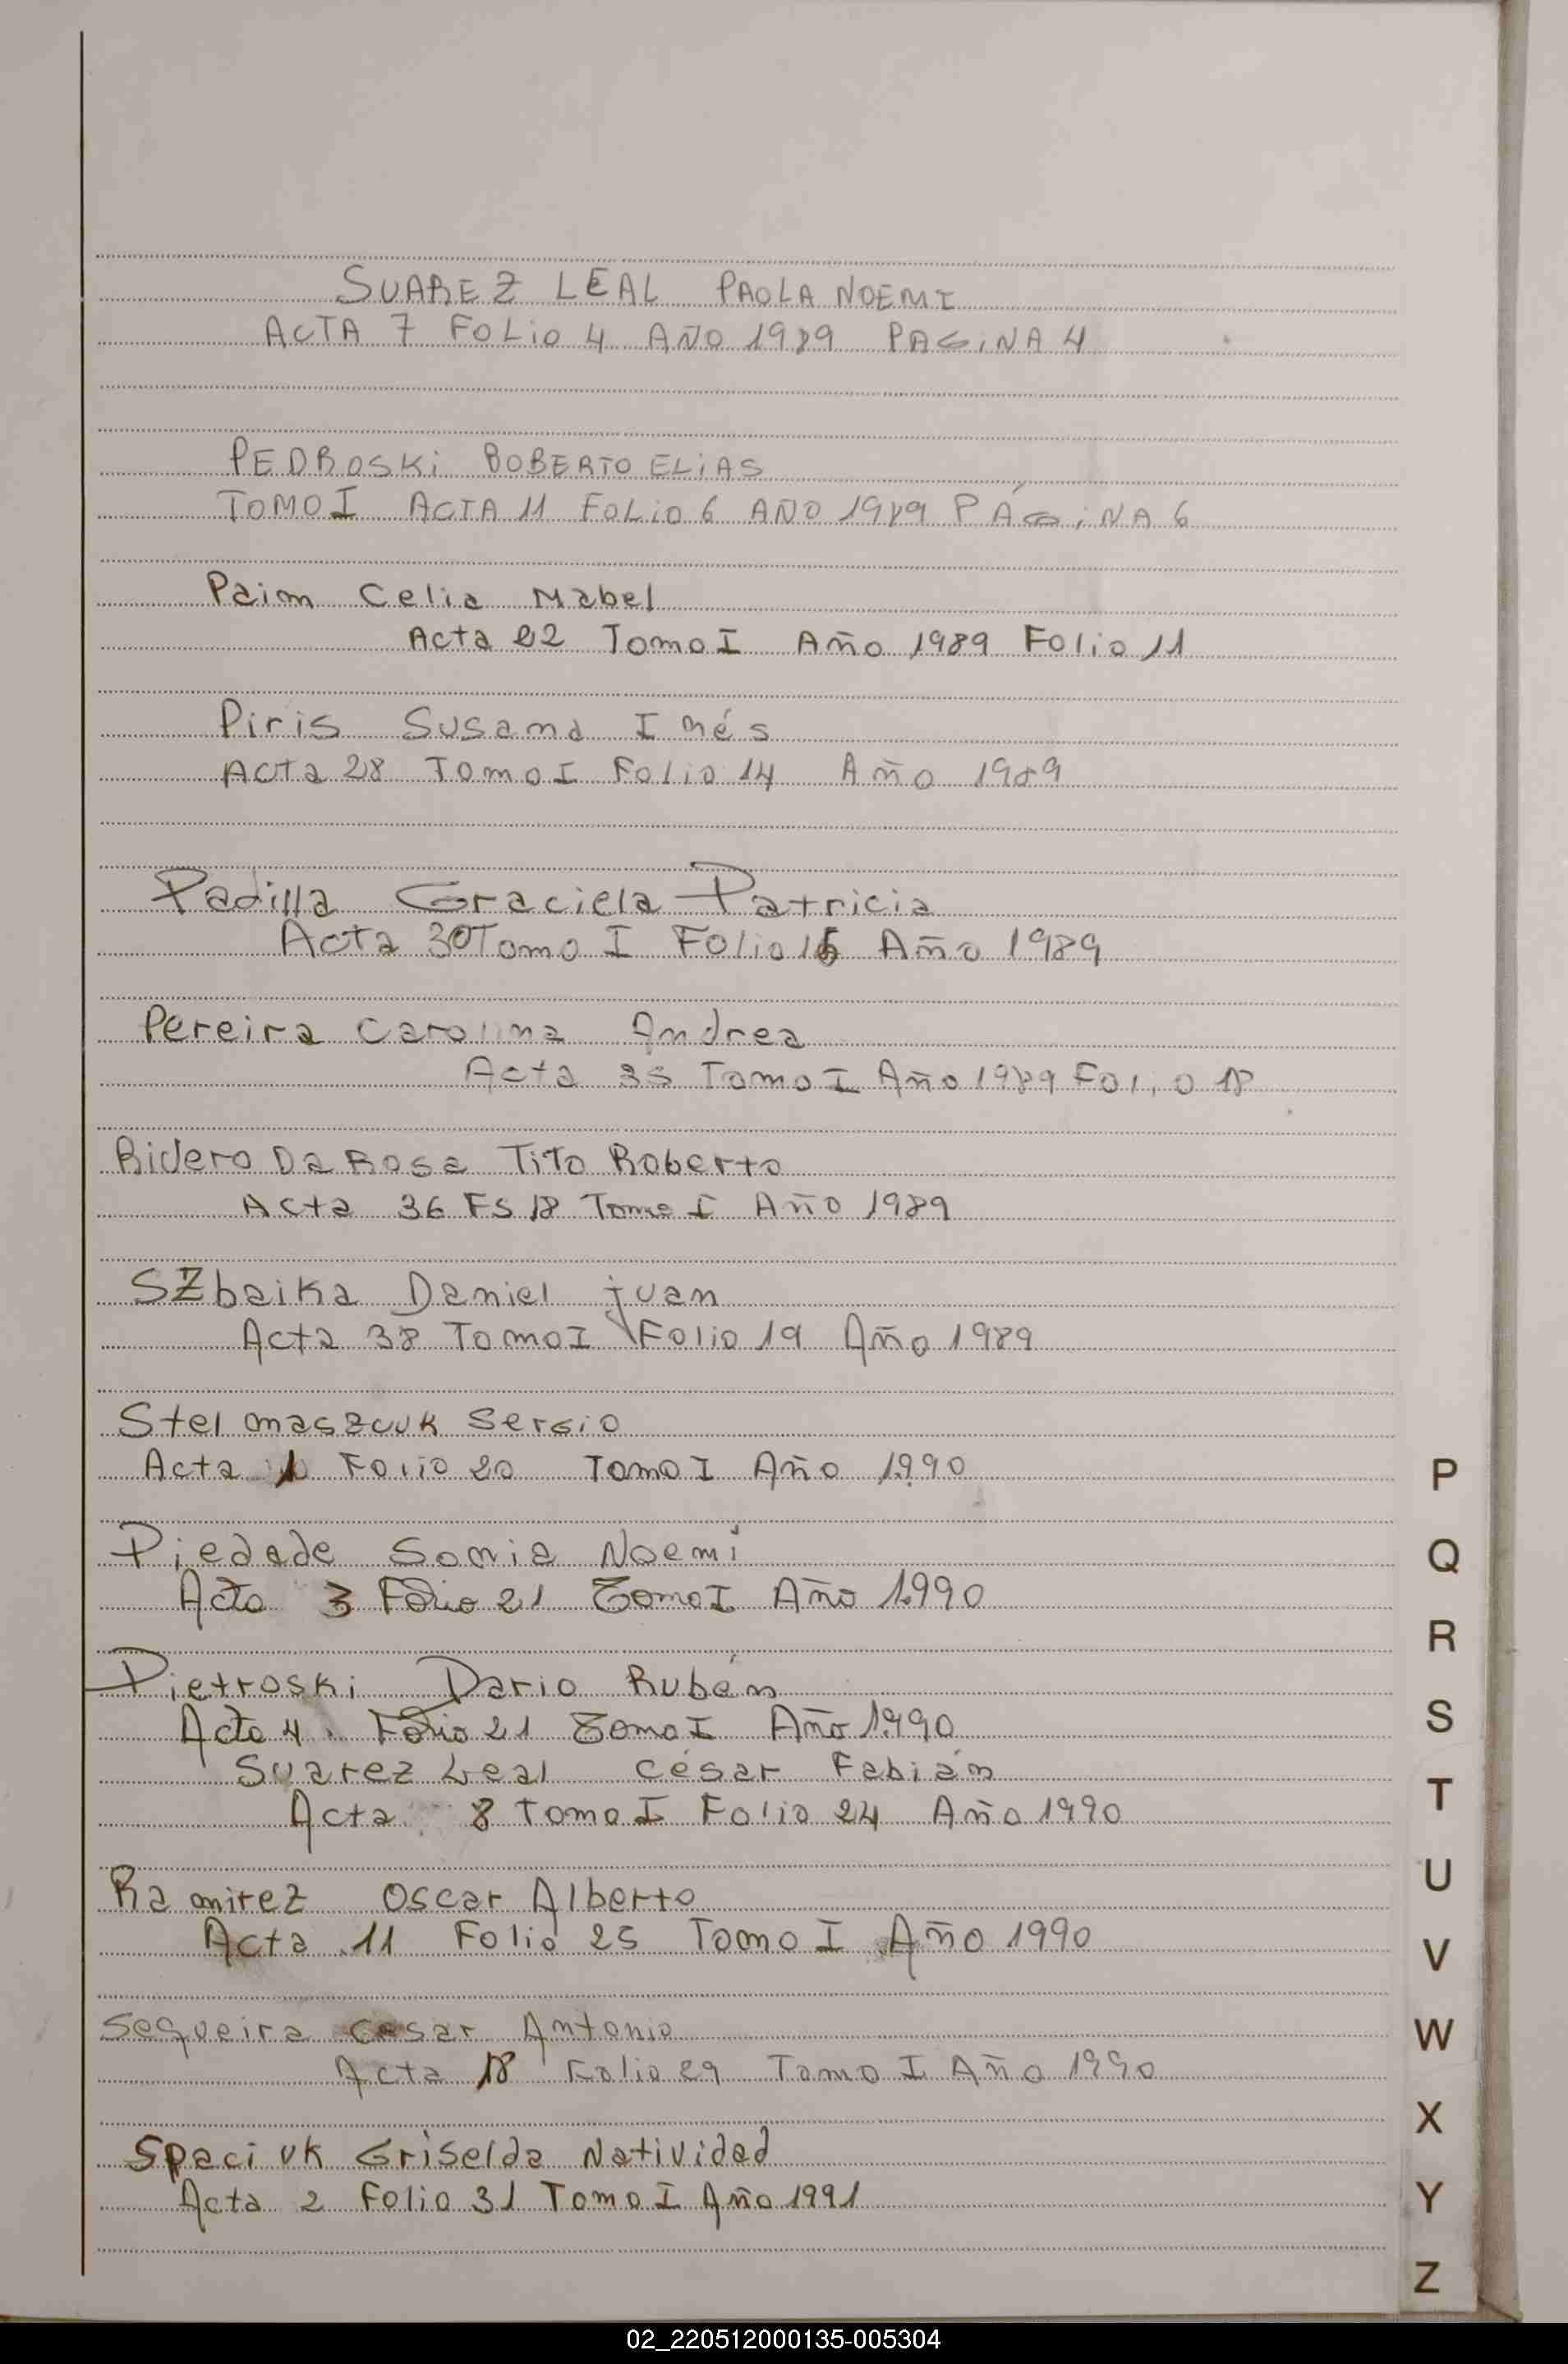 SUAREZ LEAL PAOLA NOEMI
ACTA 7 FOLiO 4 AÑO 1989 PAGiNA 4
PEDROSKi ROBERTO ELiAS
TOMO I ACTA 11 FOLiO 6 AÑO 1989 PÁGiNA 6
Paim Celia Mabel
Acta 22 Tomo I Año 1989 Folio 11
Piris Susana Inés
Acta 28 Tomo I Folio 14 Año 1989
Padilla Graciela Patricia
Acta 30 Tomo I Folio 15 Año 1989
Pereira Carolina Andrea
Acta 35 Tomo I Año 1989 Folio 18
Ridero Da Rosa Tito Roberto
Acta 36 FS 18 Tomo I Año 1989
SZbaika Daniel juan
Acta 38 Tomo I Folio 19 Año 1989
Stelmaszcuk Sergio
Acta 1 Folio 20 Tomo I Año 1990
Piedade Sonia Noemí
Acta 3 Folio 21 Tomo I Año 1990
Pietroski Dario Rubén
Acta 4 Folio 21 Tomo I Año 1990
Suarez Leal césar Fabián
Acta 8 Tomo I Folio 24 Año 1990
Ramirez Oscar Alberto
Acta 11 Folio 25 Tomo I Año 1990
Sequeira cesar Antonio
Acta 18 Folio 29 Tomo I Año 1990
Spaciuk Griselda Natividad
Acta 2 Folio 31 Tomo I Año 1991
P
Q
R
S
T
U
V
W
X
Y
Z
02_220512000135-005304